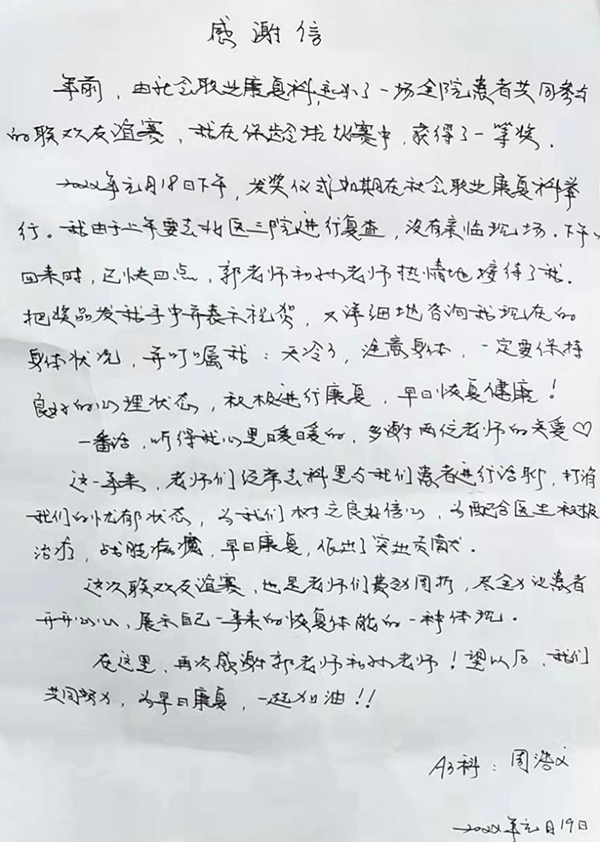 感谢信
年前，由社会职业康复科，近办了一场全院患者共同参与
的联欢友谊赛，我在保龄球比赛中，获得了一等奖。
2022年元月18日下午，发奖仪式如期在社会职业康复科举
行。我由于上午要去北区三院进行复查，没有亲临现场。下午
回来时，已快四点，郭老师和孙老师热情地接待了我。
把奖品发我手中并表示祝贺，又详细地咨询我现在的
身体状况，并叮嘱我：天冷了，注意身体，一定要保持
良好的心理状态，积极进行康复，早日恢复健康！
一番话，听得我心里暖暖的，多谢两位老师的关爱♡
这一年来，老师们经常去科里与我们患者进行话聊，打消
我们的忧郁状态，为我们树立良好信心，为配合医生积极
治疗，战胜病魔，早日康复，做出了突出贡献。
这次联欢友谊赛，也是老师们费劲周折，尽全力让患者
开开心心，展示自己一年来的恢复体能的一种体现。
在这里，再次感谢郭老师和孙老师！望以后，我们
共同努力，为早日康复，一起加油！！
A3科：周
2022年元月19日